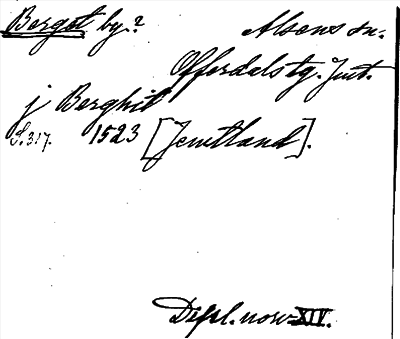 Berget by.? Alsens sn.
Offerdals tg. Jmt.
j Berghit
S.317. 1523 [Jemtland].
Dipl. norv. XIV.